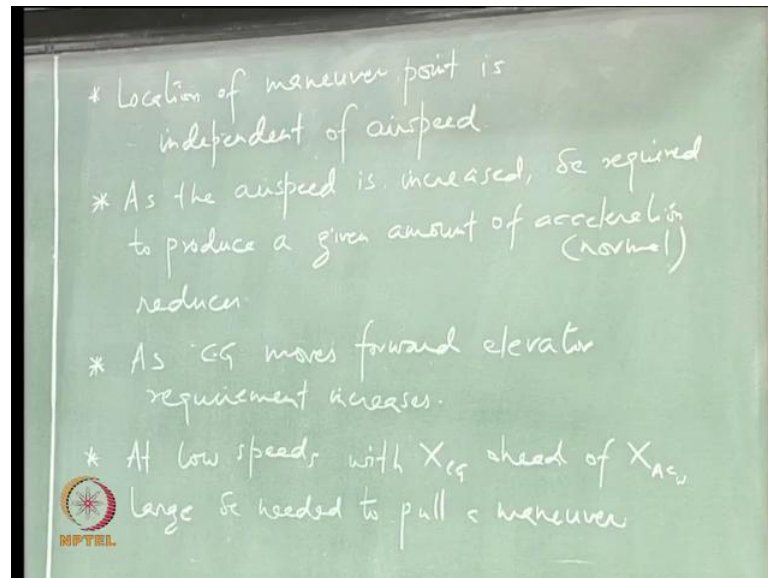 * Location of maneuver point is
independent of airspeed.
* As the airspeed is increased, δe required
to produce a given amount of acceleration
(normal)
reduces.
* As CG moves forward elevator
requirement increases.
* At low speeds with XCG ahead of XACw
large δe needed to pull a maneuver
NPTEL